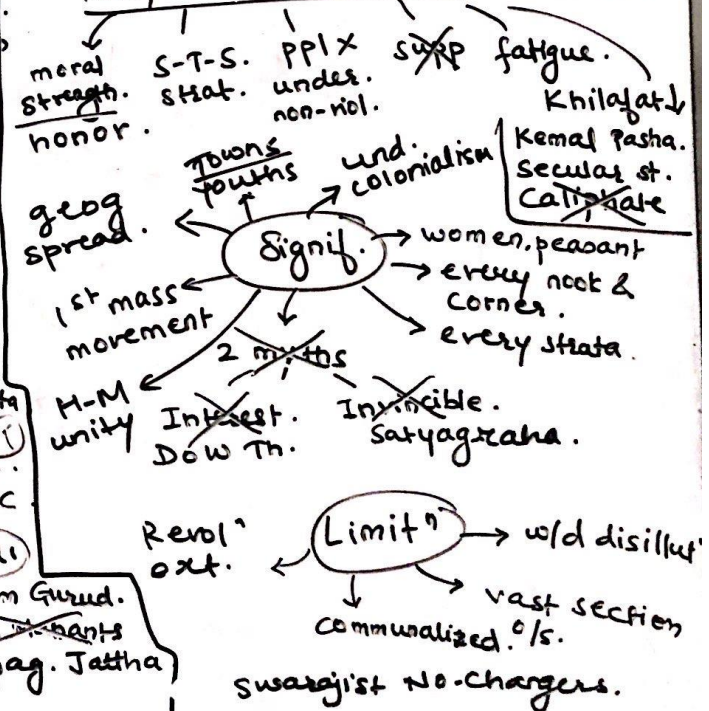 moral
strength.
honor.
S-T-S.
strat.
ppl x
under.
non-viol.
supp
fatigue.
Khilafat↓
Kemal Pasha.
secular st.
Caliphate
Signif.
Towns
youths
und.
colonialism
geog
spread.
women, peasant
every nook &
corner.
every strata.
1st mass
movement
2 myths
H-M
unity
Interest.
Dow Th.
Invincible.
Satyagraha.
Limitⁿ
Revolⁿ
ext.
w/d disillut
vast section
communalized. o/s.
Swarajist No-Chargers.
m Gurud.
ag. Jattha